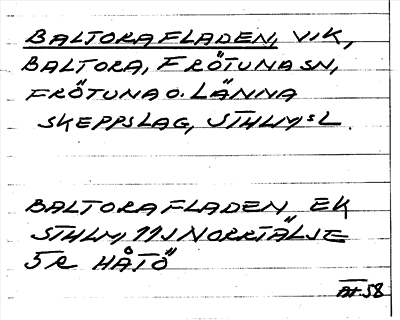 BALTORAFLADEN, VIK,
BALTORA, FRÖTUNA SN,
FRÖTUNA O. LÄNNA
SKEPPSLAG, STHLMS L.
BALTORAFLADEN EK
STHLM, 11J NORRTÄLJE
5R HÅTÖ
58